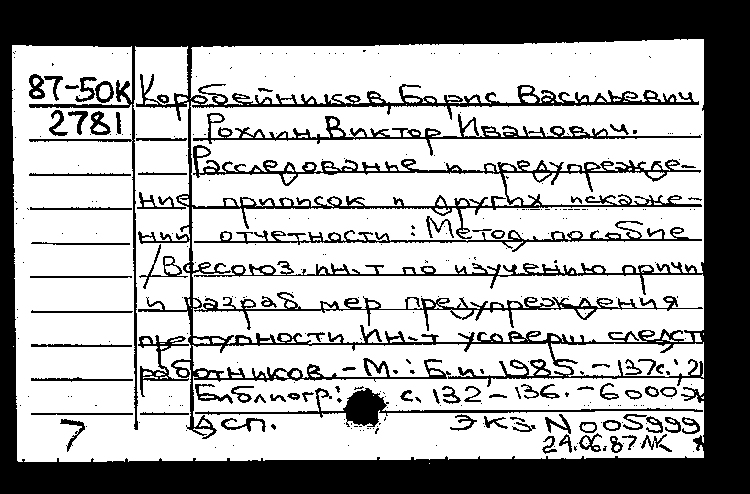 87-50К Коробейников, Борис Васильевич,
2781 Рохлин, Виктор Иванович.
Расследование и предупрежде-
ние приписок и других искаже-
ний отчетности : Метод. пособие
/Всесоюз. ин-т по изучению причи
и разраб мер предупреждения
преступности, Ин-т усоверш. следст
работников. - М. : Б.и., 1985. - 137с.; 21
Библиогр.: с. 132-136. - 6000э
7 ДСП. Экз. N 005999
24.06.87 ЛК